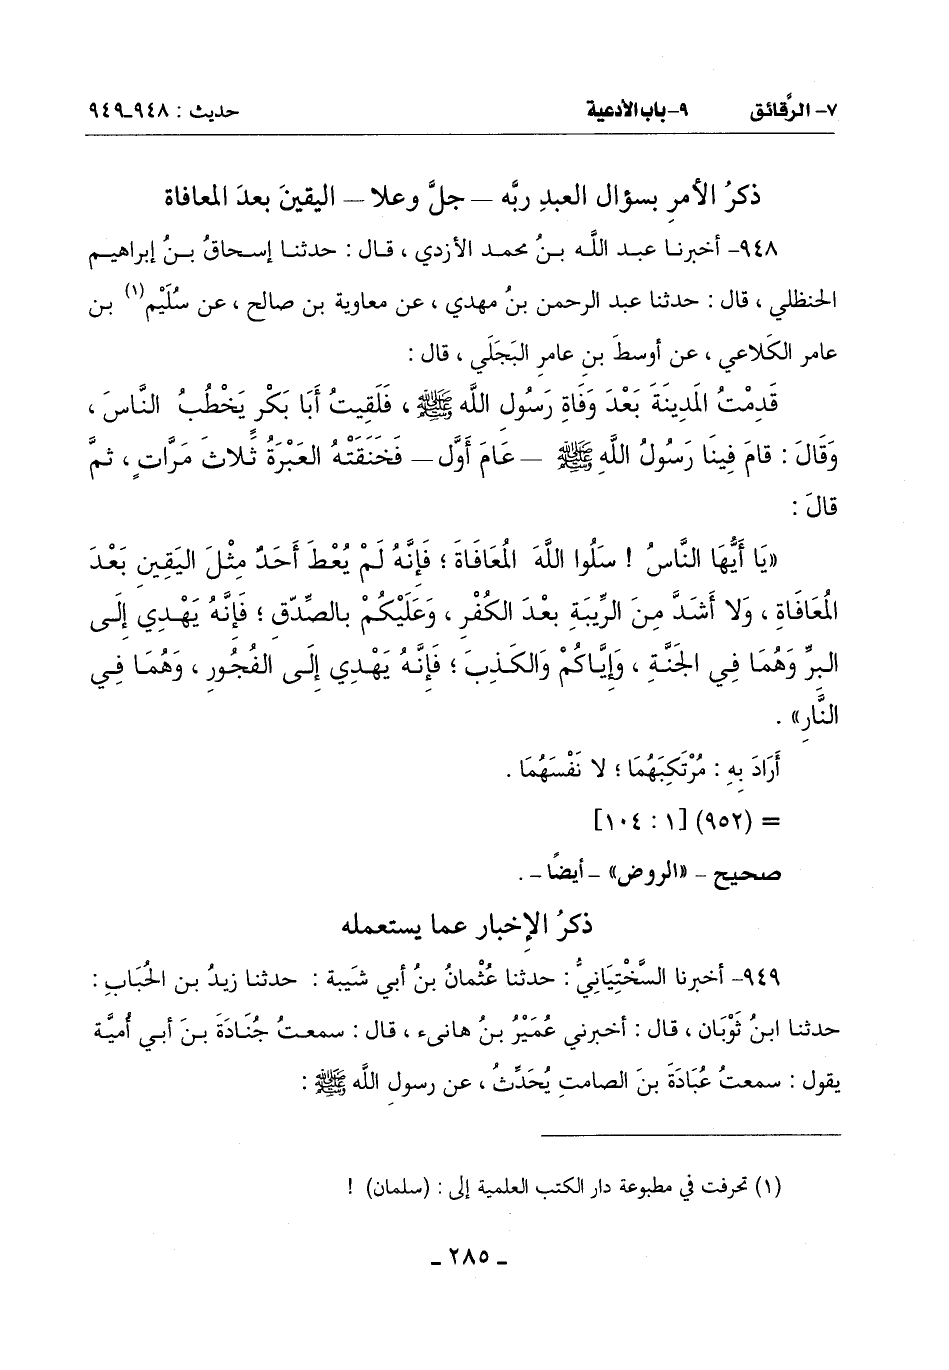 ٧- الرَّقائق ٩- باب الأدعية حديث : ٩٤٨-٩٤٩
ذكرُ الأمرِ بسؤال العبدِ ربَّه – جلَّ وعلا – اليقينَ بعدَ المعافاة
٩٤٨- أخبرنا عبد اللَّه بنُ محمد الأزدي ، قال : حدثنا إسحاقُ بنُ إبراهيم
الحنظلي ، قال : حدثنا عبد الرحمن بنُ مهدي ، عن معاوية بن صالح ، عن سُلَيْم(١) بن
عامر الكَلاعي ، عن أوسطَ بنِ عامرٍ البَجَلَي ، قال :
قَدِمْتُ المَدِينَةَ بَعْدَ وَفَاةِ رَسُولِ اللَّه ﷺ ، فَلَقِيتُ أَبَا بَكْرٍ يَخْطُبُ النَّاسَ ،
وَقَالَ : قامَ فِينَا رَسُولُ اللَّهِ ﷺ – عَامَ أَوَّلَ – فَخَنَقَتْهُ العَبْرَةُ ثَلاثَ مَرَّاتٍ ، ثمَّ
قالَ :
«يَا أَيُّهَا النَّاسُ ! سَلُوا اللَّهَ المُعَافَاةَ ؛ فَإِنَّهُ لَمْ يُعْطَ أَحَدٌ مِثْلَ اليَقِينِ بَعْدَ
المُعَافَاةِ ، وَلا أَشَدَّ مِنَ الرِّيبَةِ بعْدَ الكُفْرِ ، وَعَلَيْكُمْ بالصِّدْقِ ؛ فَإِنَّهُ يَهْدِي إِلَى
البِرِّ وَهُمَا فِي الجَنَّةِ ، وَإِيَّاكُمْ وَالكَذِبَ ؛ فَإِنَّهُ يَهْدِي إِلَى الفُجُورِ ، وَهُمَا فِي
النَّارِ» .
أَرَادَ بِهِ : مُرْتَكِبَهُمَا ؛ لا نَفْسَهُمَا .
= (٩٥٢) [١ : ١٠٤]
صحيح – «الروض» – أيضًا – .
ذكرُ الإخبار عما يستعمله
٩٤٩- أخبرنا السَّخْتِيَانيُّ : حدثنا عُثْمانُ بنُ أبي شَيبة : حدثنا زيدُ بن الحُبَابِ :
حدثنا ابنُ ثَوْبَان ، قال : أخبرني عُمَيْرُ بنُ هانىء ، قال : سمعتُ جُنَادَةَ بنَ أبي أُميَّة
يقول : سمعتُ عُبَادَةَ بنَ الصامتِ يُحَدِّثُ ، عن رسولِ اللَّه ﷺ :
(١) تحرفت في مطبوعة دار الكتب العلمية إلى : (سلمان) !
- ٢٨٥ -